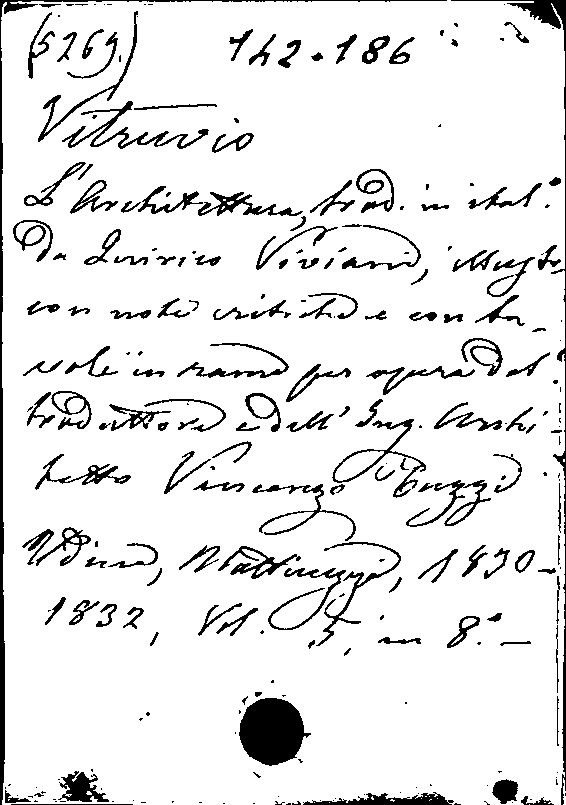 (5269.) 142.186
Vitruvio
L'Architettura, trad. in ital.°
da Quirico Viviani, illustr.
con note critiche e con ta-
vole in rame per opera del
traduttore e dell' Ing. Archi-
tetto Vincenzo Tuzzi
Udine, Mattiuzzi, 1830-
1832, Vol. 5, in 8.° -